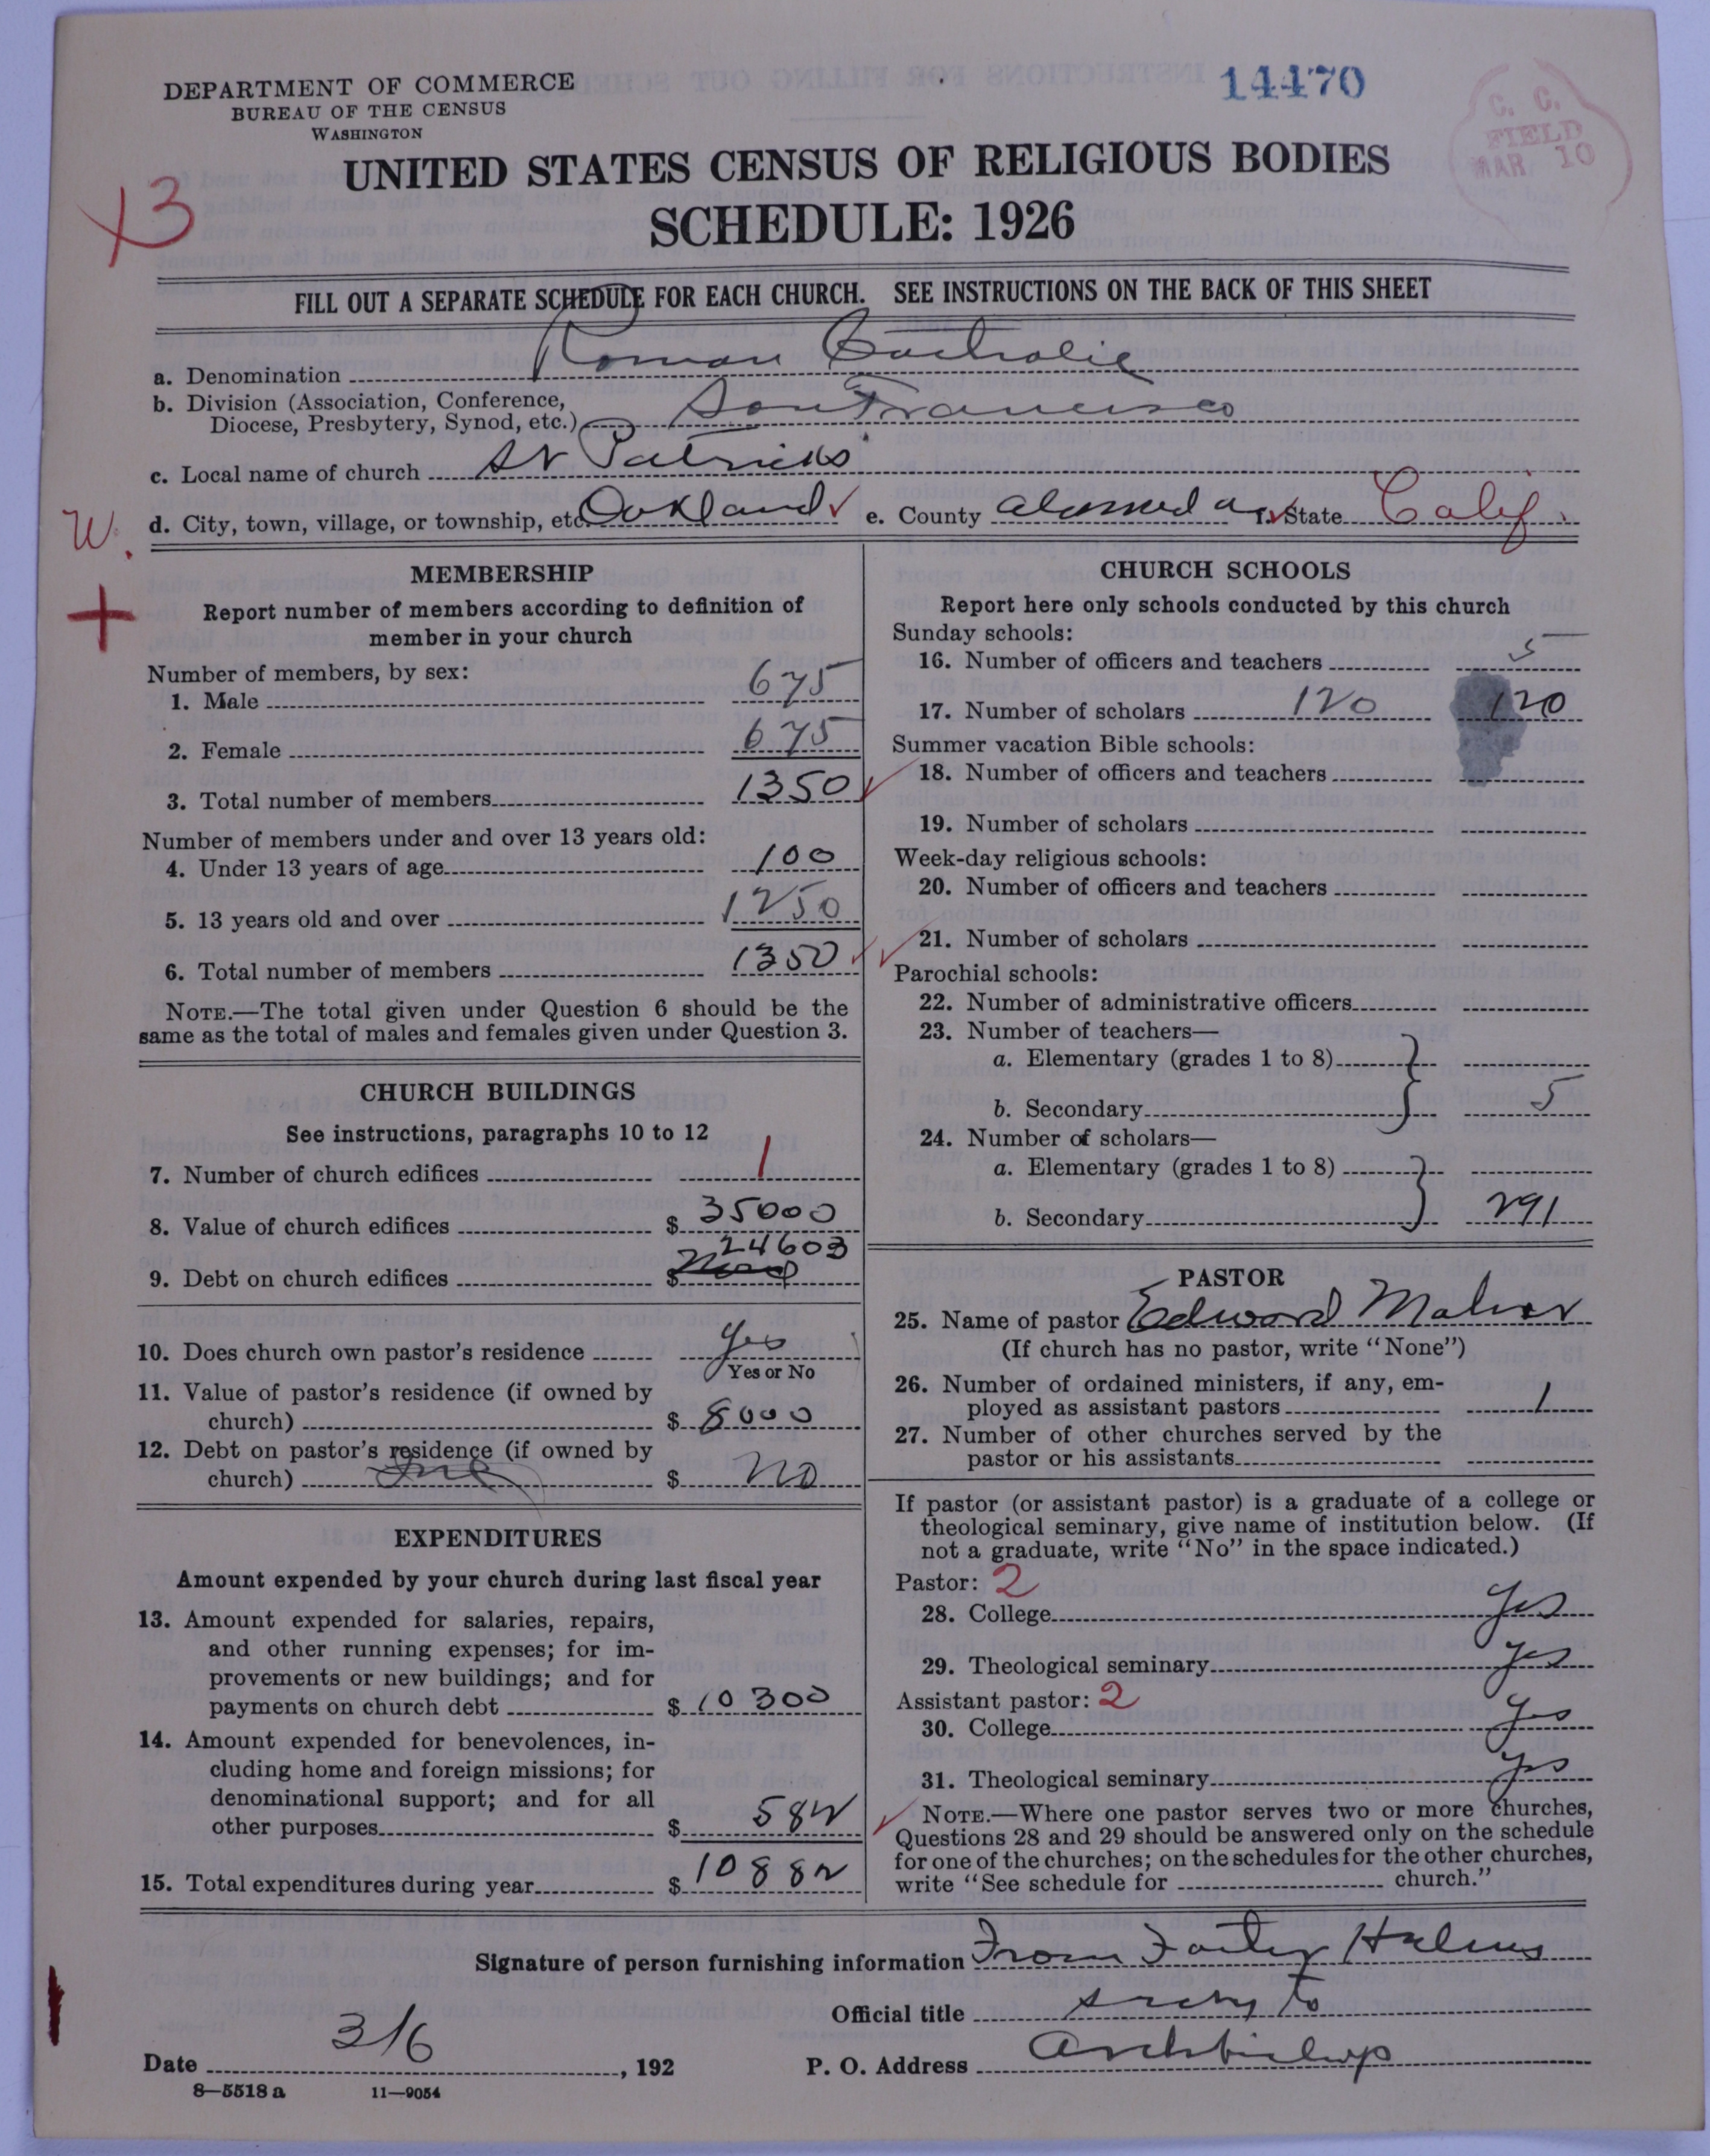 DEPARTMENT OF COMMERCE
BUREAU OF THE CENSUS
WASHINGTON
14470
C. C.
FIELD
MAR 10
UNITED STATES CENSUS OF RELIGIOUS BODIES
13
SCHEDULE: 1926
FILL OUT A SEPARATE SCHEDULE FOR EACH CHURCH. SEE INSTRUCTIONS ON THE BACK OF THIS SHEET
a. Denomination Roman Catholic
b. Division (Association, Conference,
Diocese, Presbytery, Synod, etc.) San Francisco
c. Local name of church St Patricks
W. d. City, town, village, or township, etc. Oakland e. County Alameda f. State Calif.
MEMBERSHIP
Report number of members according to definition of
member in your church
Number of members, by sex:
1. Male 675
2. Female 675
3. Total number of members 1350
Number of members under and over 13 years old:
4. Under 13 years of age 100
5. 13 years old and over 1250
6. Total number of members 1350
NOTE.—The total given under Question 6 should be the
same as the total of males and females given under Question 3.
CHURCH BUILDINGS
See instructions, paragraphs 10 to 12
7. Number of church edifices 1
8. Value of church edifices $ 35000
9. Debt on church edifices $ 24603
10. Does church own pastor's residence Yes
Yes or No
11. Value of pastor's residence (if owned by
church) $ 8000
12. Debt on pastor's residence (if owned by
church) $ no
EXPENDITURES
Amount expended by your church during last fiscal year
13. Amount expended for salaries, repairs,
and other running expenses; for im-
provements or new buildings; and for
payments on church debt $ 10300
14. Amount expended for benevolences, in-
cluding home and foreign missions; for
denominational support; and for all
other purposes $ 582
15. Total expenditures during year $ 10882
CHURCH SCHOOLS
Report here only schools conducted by this church
Sunday schools:
16. Number of officers and teachers 5
17. Number of scholars 120 120
Summer vacation Bible schools:
18. Number of officers and teachers
19. Number of scholars
Week-day religious schools:
20. Number of officers and teachers
21. Number of scholars
Parochial schools:
22. Number of administrative officers
23. Number of teachers—
a. Elementary (grades 1 to 8)
b. Secondary 5
24. Number of scholars—
a. Elementary (grades 1 to 8)
b. Secondary 291
PASTOR
25. Name of pastor Edward Maher
(If church has no pastor, write "None")
26. Number of ordained ministers, if any, em-
ployed as assistant pastors 1
27. Number of other churches served by the
pastor or his assistants
If pastor (or assistant pastor) is a graduate of a college or
theological seminary, give name of institution below. (If
not a graduate, write "No" in the space indicated.)
Pastor: 2
28. College yes
29. Theological seminary yes
Assistant pastor: 2
30. College yes
31. Theological seminary yes
NOTE.—Where one pastor serves two or more churches,
Questions 28 and 29 should be answered only on the schedule
for one of the churches; on the schedules for the other churches,
write "See schedule for church."
Signature of person furnishing information From
Official title secy to
Date 3/6, 192 P. O. Address Archbishop
8—5518 a 11—9054